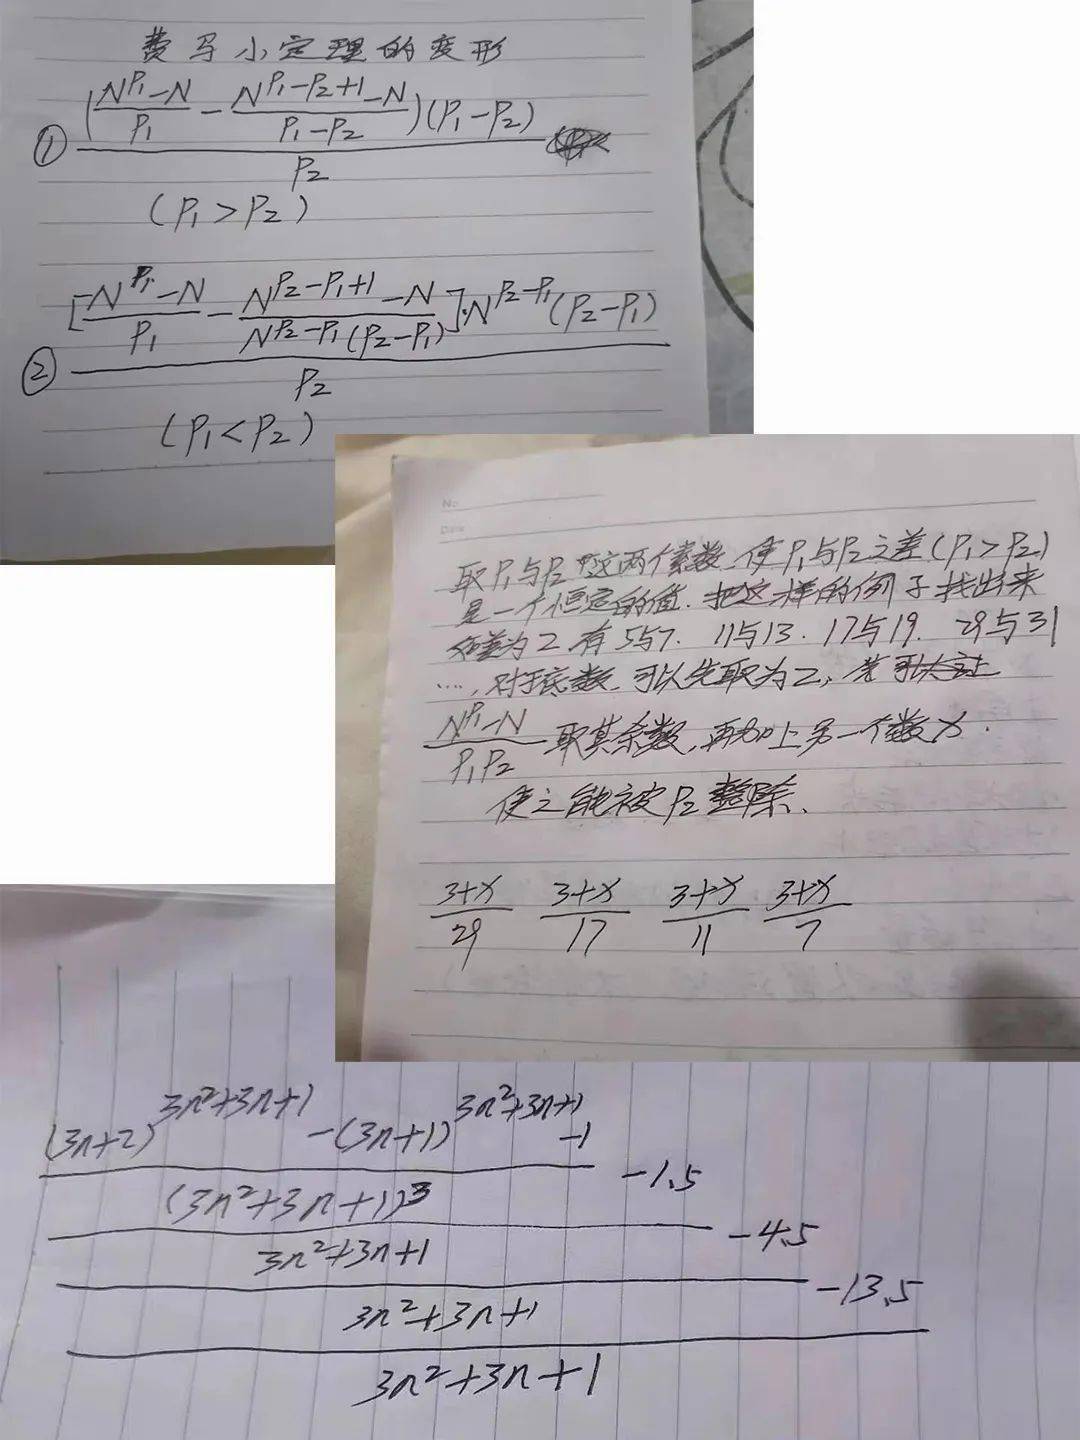 费马小定理的变形
① ((N^P₁-N)/P₁ - (N^(P₁-P₂+1)-N)/(P₁-P₂))(P₁-P₂) / P₂
(P₁>P₂)
② [(N^P₁-N)/P₁ - (N^(P₂-P₁+1)-N)/(N^(P₂-P₁)(P₂-P₁))]·N^(P₂-P₁)(P₂-P₁) / P₂
(P₁<P₂)
No
Date
取P₁与P₂这两个素数,使P₁与P₂之差(P₁>P₂)
是一个恒定的值.把这样的例子找出来
如差为2.有5与7.11与13.17与19.29与31
…,对于底数,可以先取为2,
(N^P₁-N)/(P₁P₂) 取其余数,再加上另一个数x.
使之能被P₂整除.
(3+x)/29 (3+x)/17 (3+x)/11 (3+x)/7
(3n+2)^(3n²+3n+1) -(3n+1)^(3n²+3n+1) -1
(3n²+3n+1)³ -1.5
3n²+3n+1 -4.5
3n²+3n+1 -13.5
3n²+3n+1